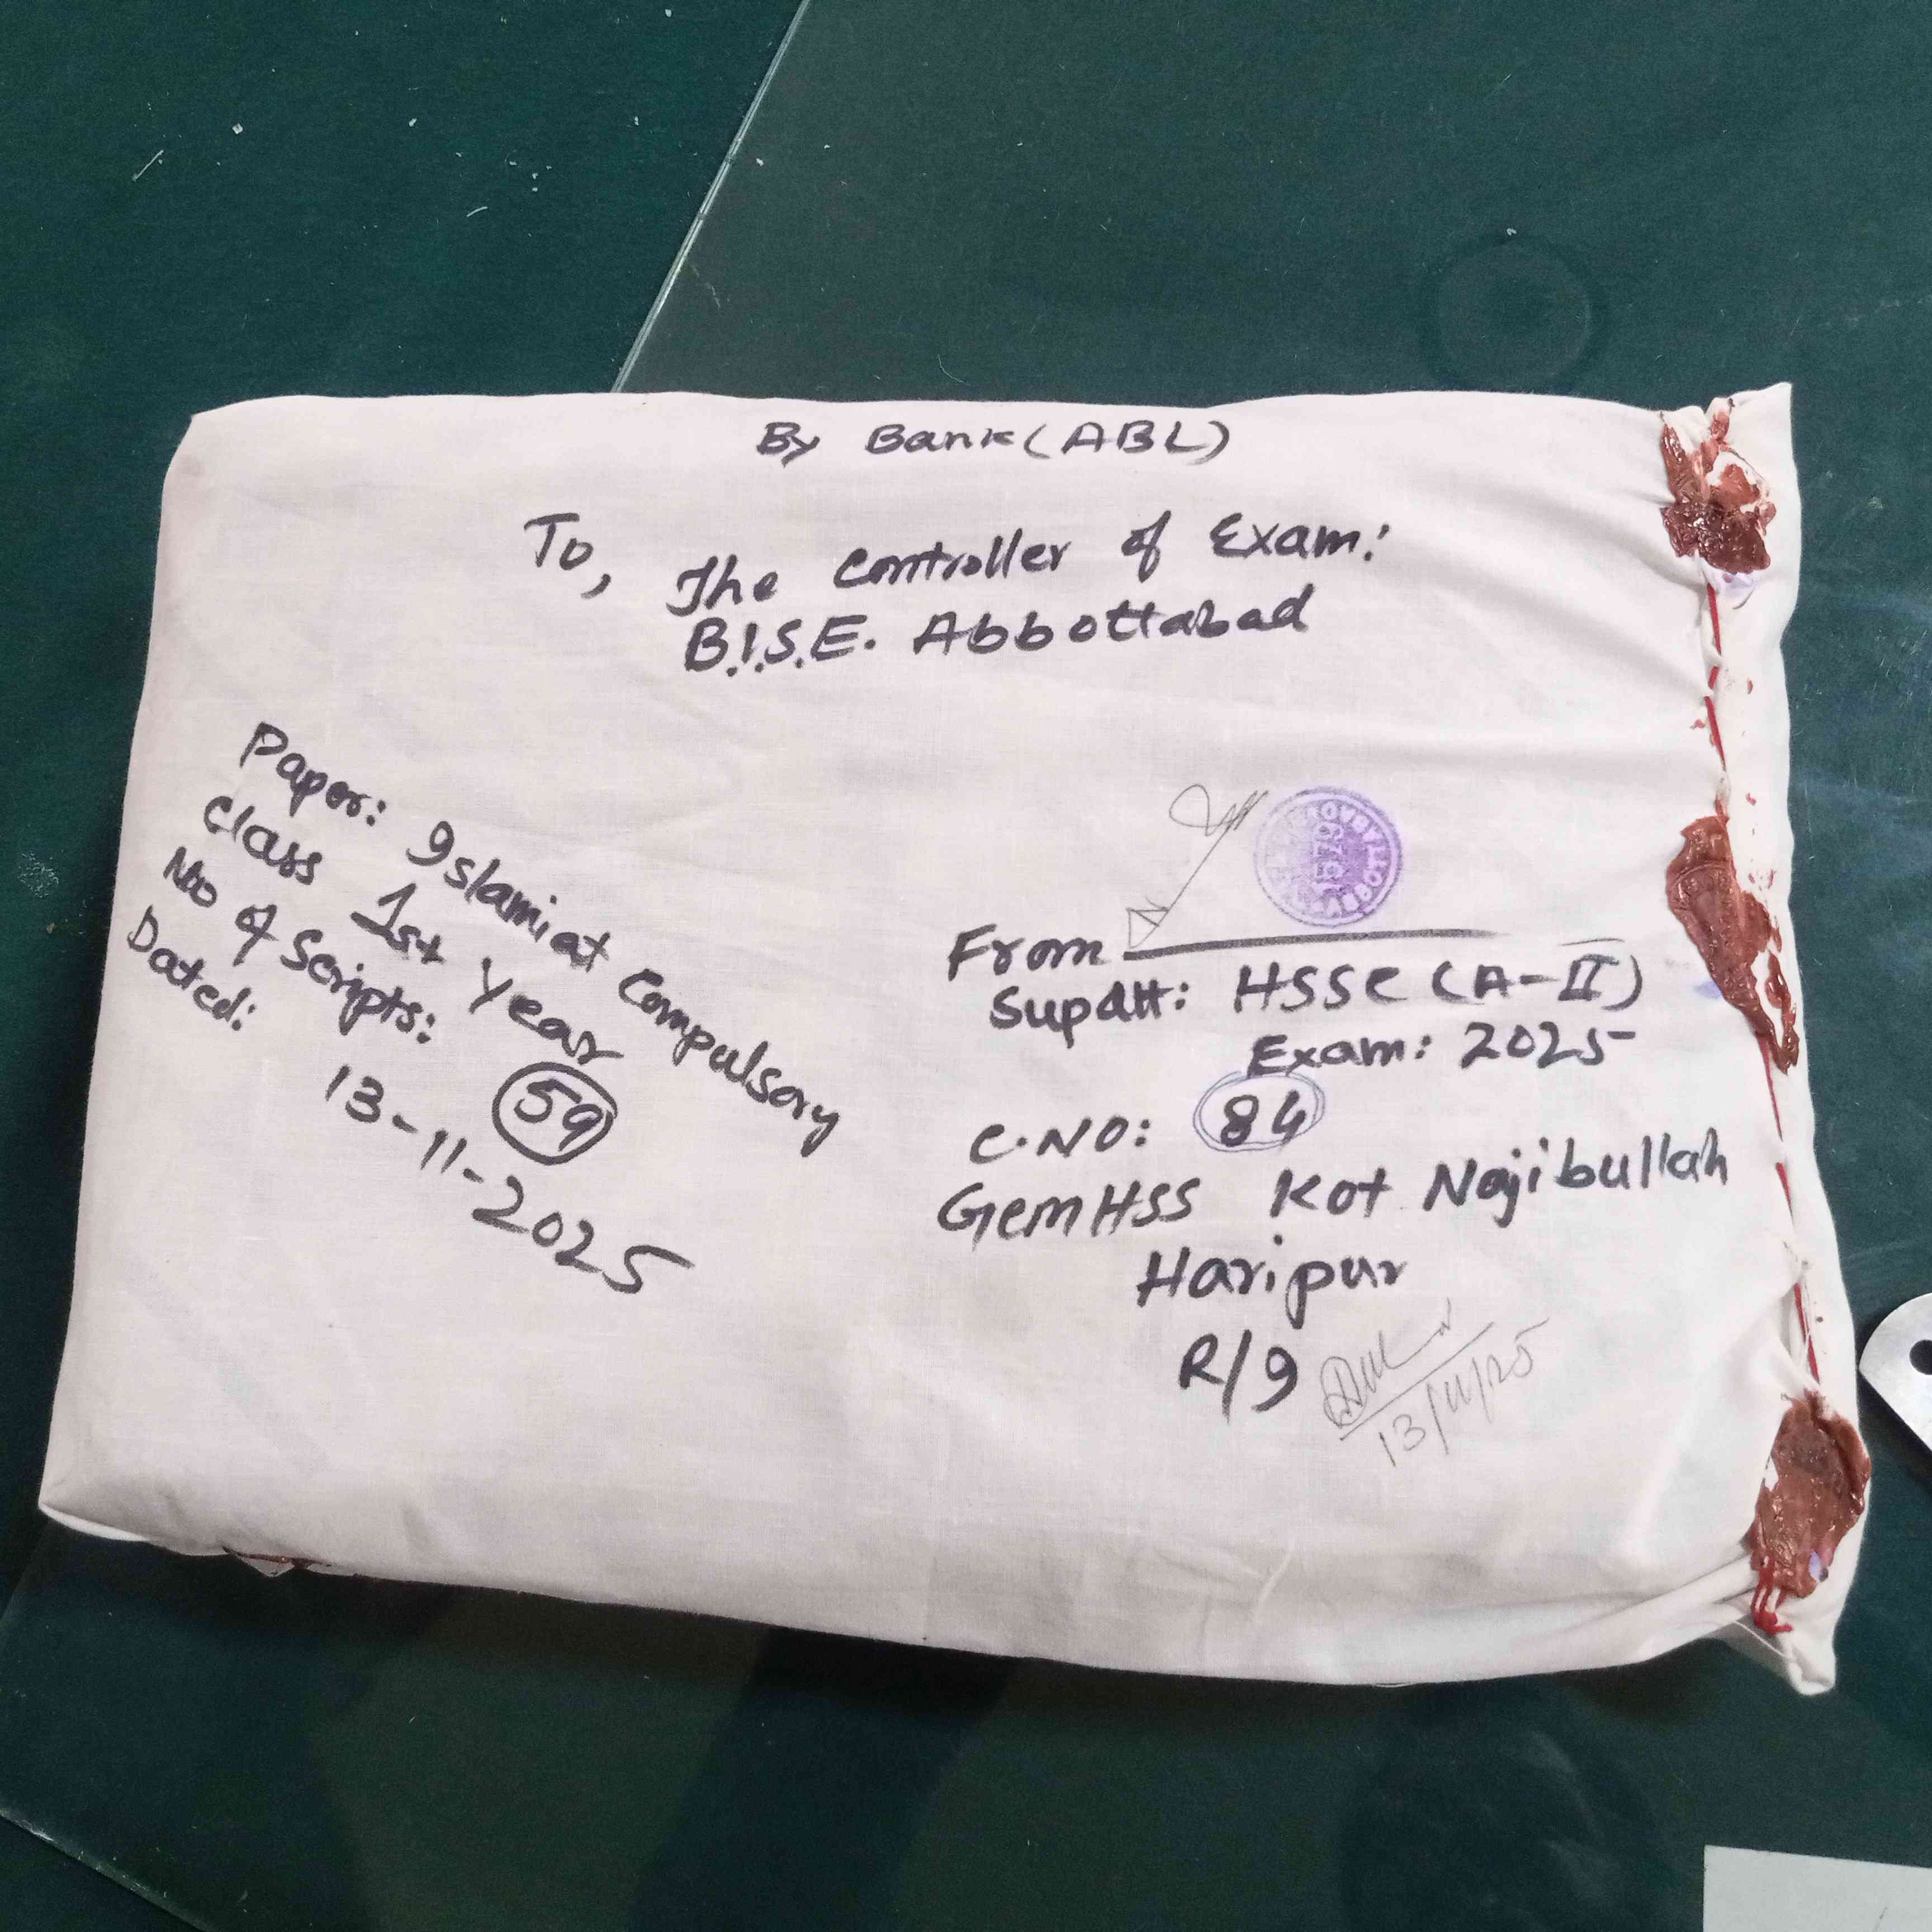 By Bank (ABL)
To,
The Controller of Exam:
B.I.S.E. Abbottabad
Paper: Islamiat Compulsory
Class 1st Year
No of Scripts: 59
Dated: 13-11-2025
From
Supdtt: HSSC (A-II)
Exam: 2025
C.NO: 84
GCMHSS Kot Najibullah
Haripur
R/9
13/11/25